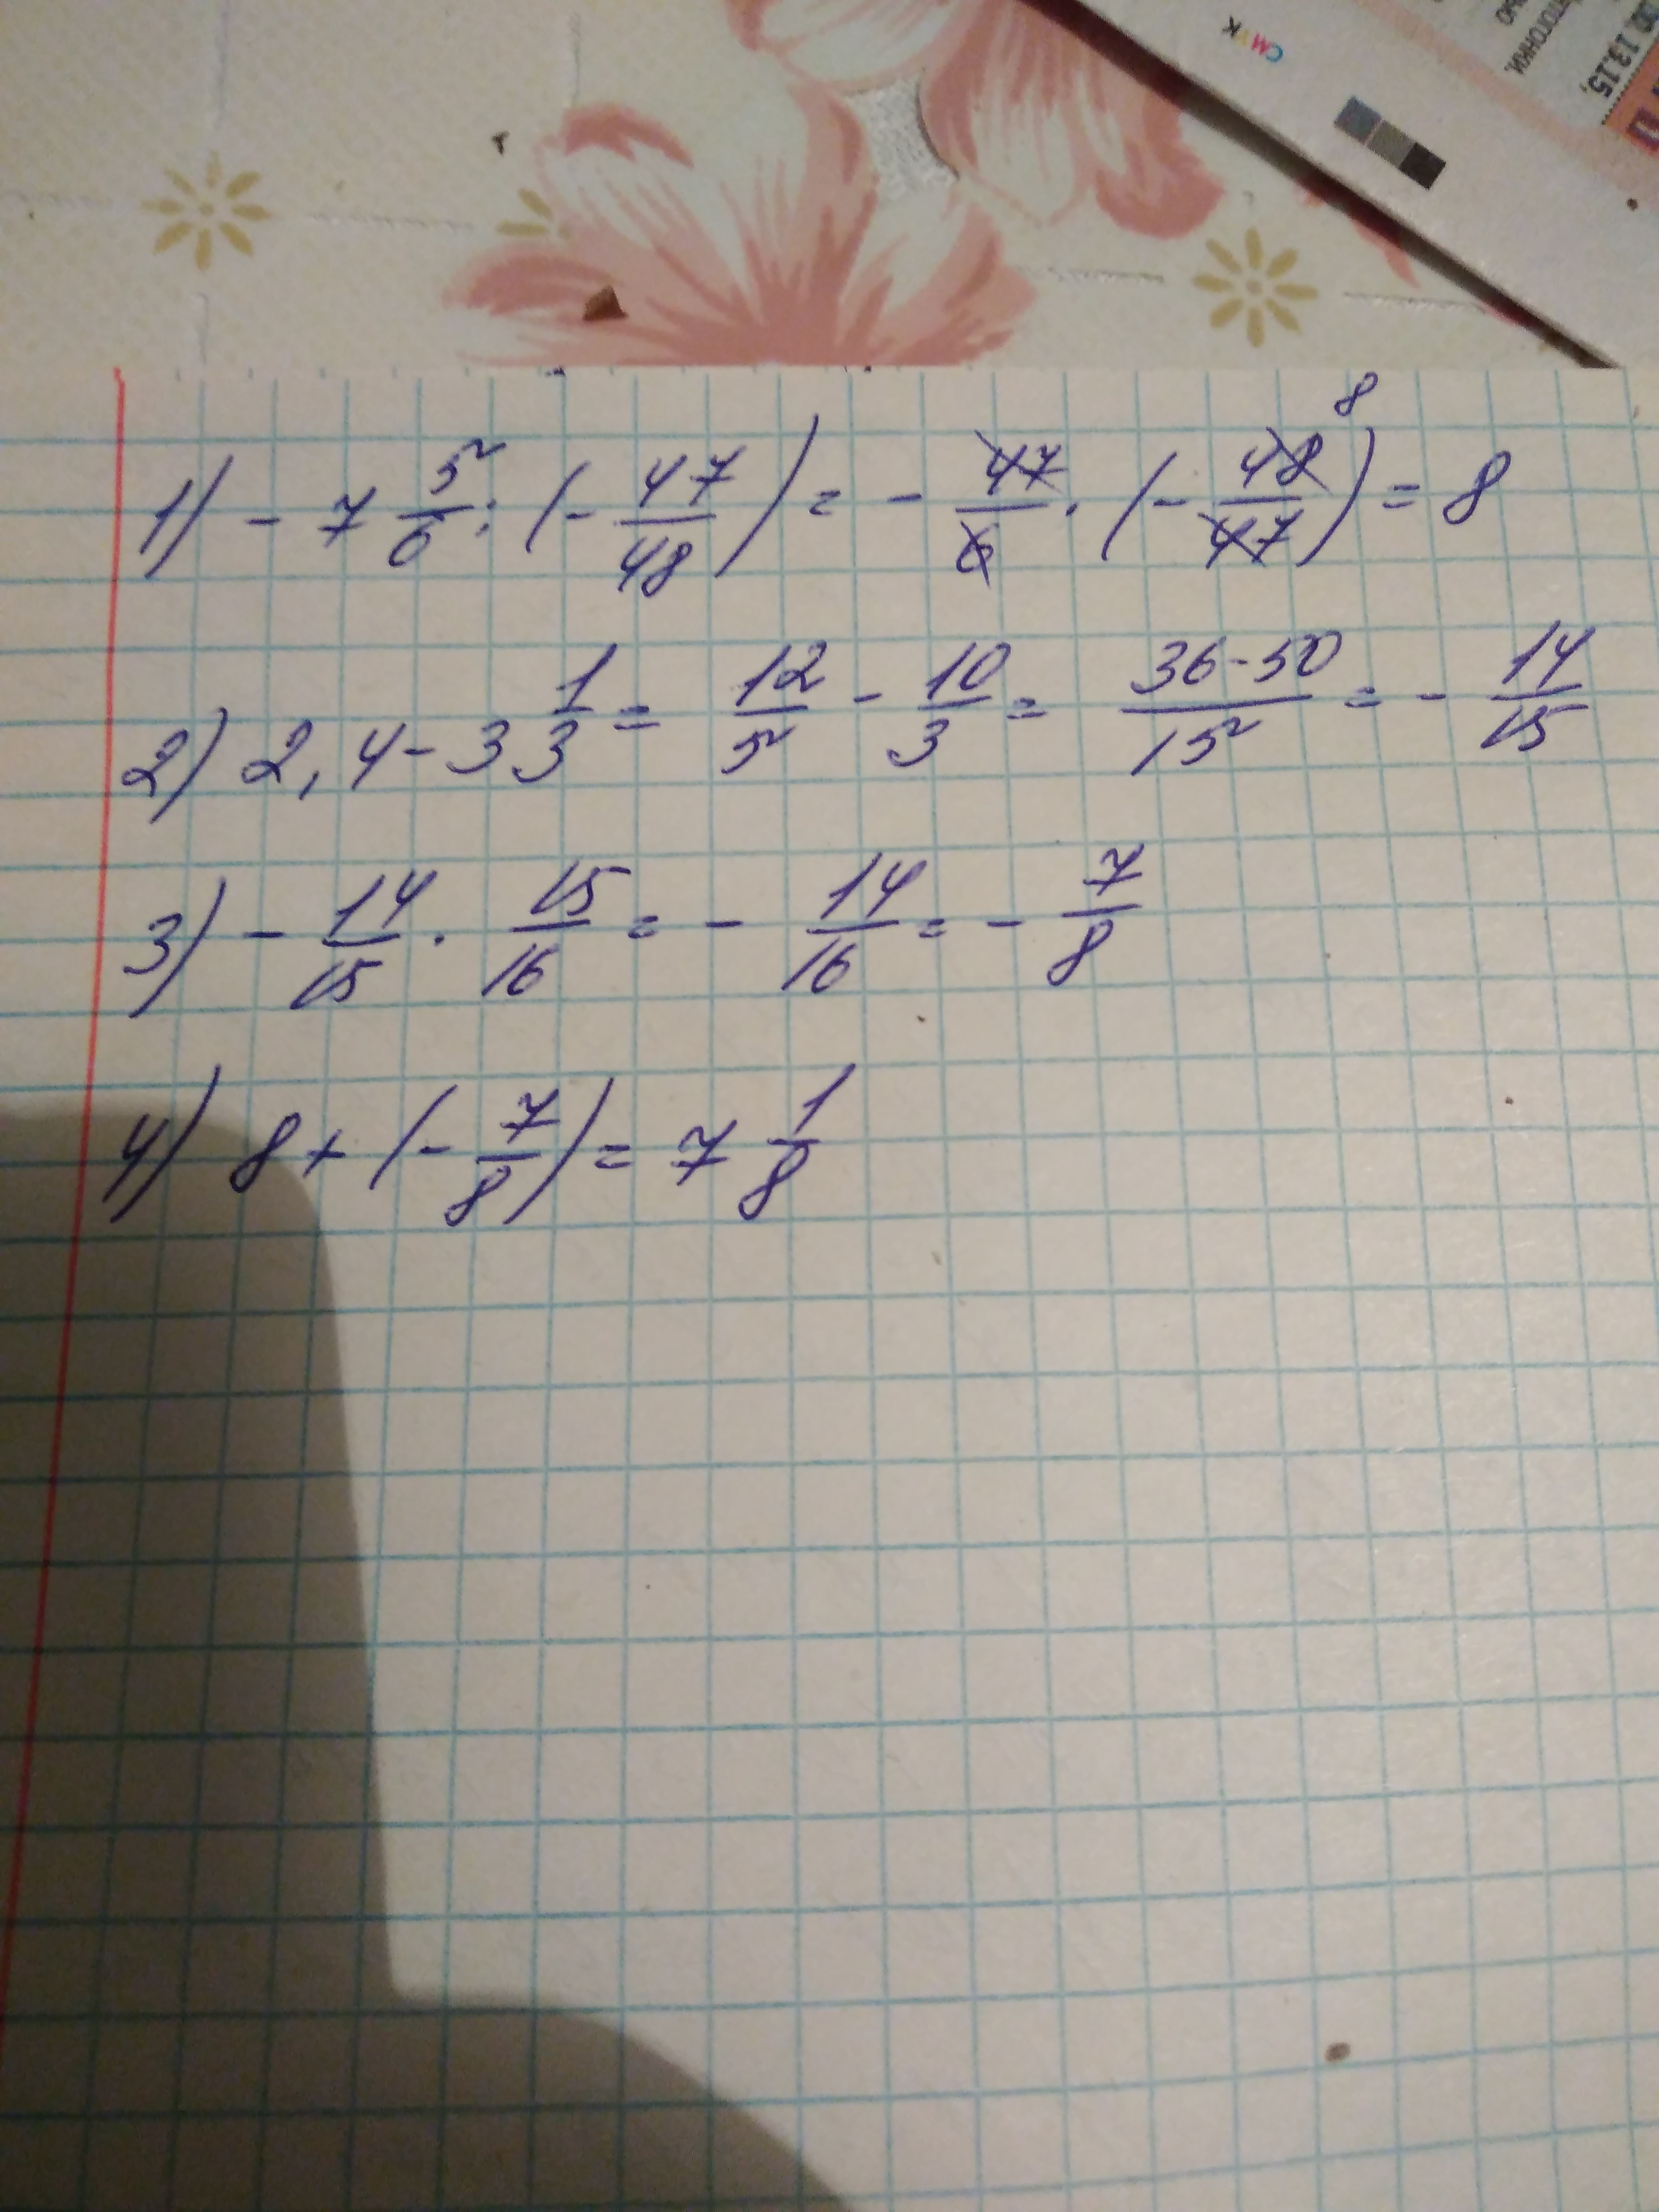 СМYК
ПОГОНКИ.
30 13.15,
1) - 7 5/6 : (- 47/48) = - 47/6 · (- 48/47) = 8 8
2) 2,4 - 3 1/3 = 12/5 - 10/3 = 36-50/15 = - 14/15
3) - 14/15 · 15/16 = - 14/16 = - 7/8
4) 8 + (- 7/8) = 7 1/8